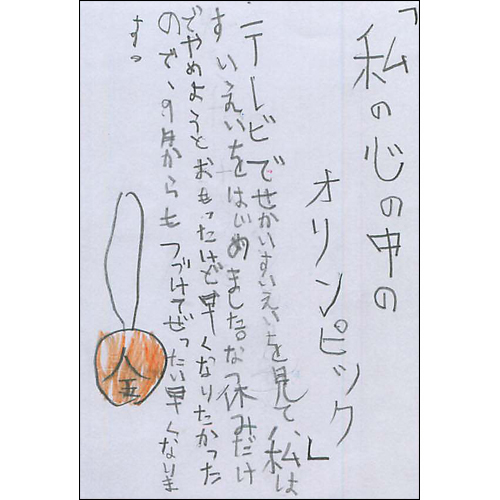 「私の心の中の
オリンピック」
テレビでせかいすいえいを見て、私は
すいえいをはじめました。なつ休みだけ
でやめようとおもったけど早くなりたかった
ので、9月からもつづけてぜったい早くないま
す。
金